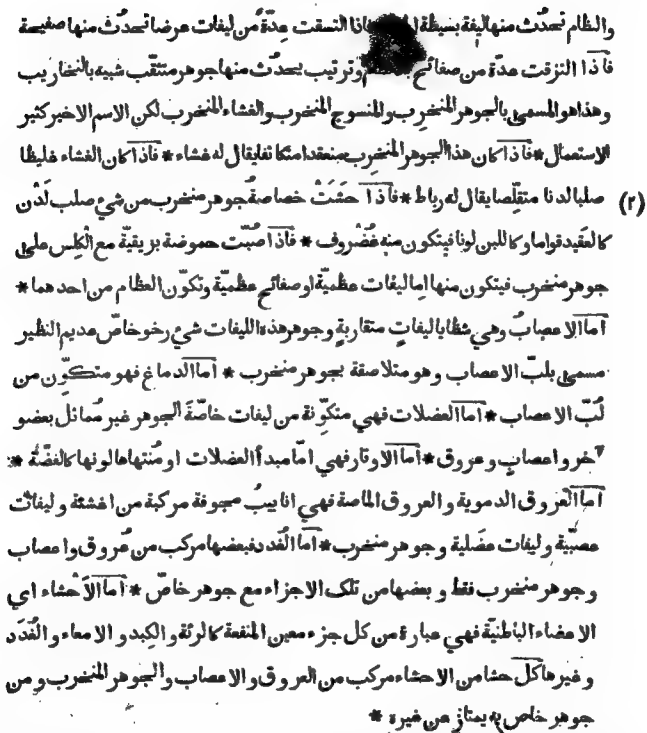 والنظام تحدّث منها ليفة بسيطة فاذا التسقت عدّة من ليفات عرضا تحدّث منها صفيحة
فاذا التزقت عدّة من صفائح وترتيب يحدّث منها جوهر متثقّب شبيه بالنخاريب
وهذا هو المسمى بالجوهر المنخرب والمنسوج المنخرب والغشاء المنخرب لكن الاسم الاخير كثير
الاستعمال * فاذا كان هذا الجوهر المنخرب منعقدا متكاتفا يقال له غشاء * فاذا كان الغشاء غليظا
صلبا لدنا متقلّصا يقال له رباط * فاذا حشت خصاصة جوهر منخرب من شيء صلب لدن (٢)
كالعقيد قواما وكاللبن لونا فيتكون منه غضروف * فاذا صُبّت حموضة بزيقيّة مع الكلس على
جوهر منخرب فيتكون منها اما ليفات عظميّة او صفائح عظميّة وتكوّن العظام من احدهما *
اما الاعصاب وهي شظايا ليفات متقاربة وجوهر هذه الليفات شيء رخو خاصّ عديم النظير
مسمى بلبّ الاعصاب وهو متلاصقة بجوهر منخرب * اما الدماغ فهو متكوّن من
لُبّ الاعصاب * اما العضلات فهي متكوّنة من ليفات خاصّة الجوهر غير مماثل بعضو
آخر واعصاب وعروق * اما الاوتار فهي امّا مبدأ العضلات او مُنتهاها لونها كالفضّة *
اما العروق الدموية والعروق الماصة فهي انابيب مجوفة مركبة من اغشئة وليفات
عصبيّة وليفات عضلية وجوهر منخرب * اما الغُدد فبعضها مركب من عروق واعصاب
وجوهر منخرب فقط وبعضها من تلك الاجزاء مع جوهر خاصّ * اما الاحشاء اي
الاعضاء الباطنيّة فهي عبارة من كل جزء معين المنفعة كالرئة والكبد والامعاء والغُدَد
وغيرها كل حشا من الاحشاء مركب من العروق والاعصاب والجوهر المنخرب ومن
جوهر خاص به يمتاز عن غيره *